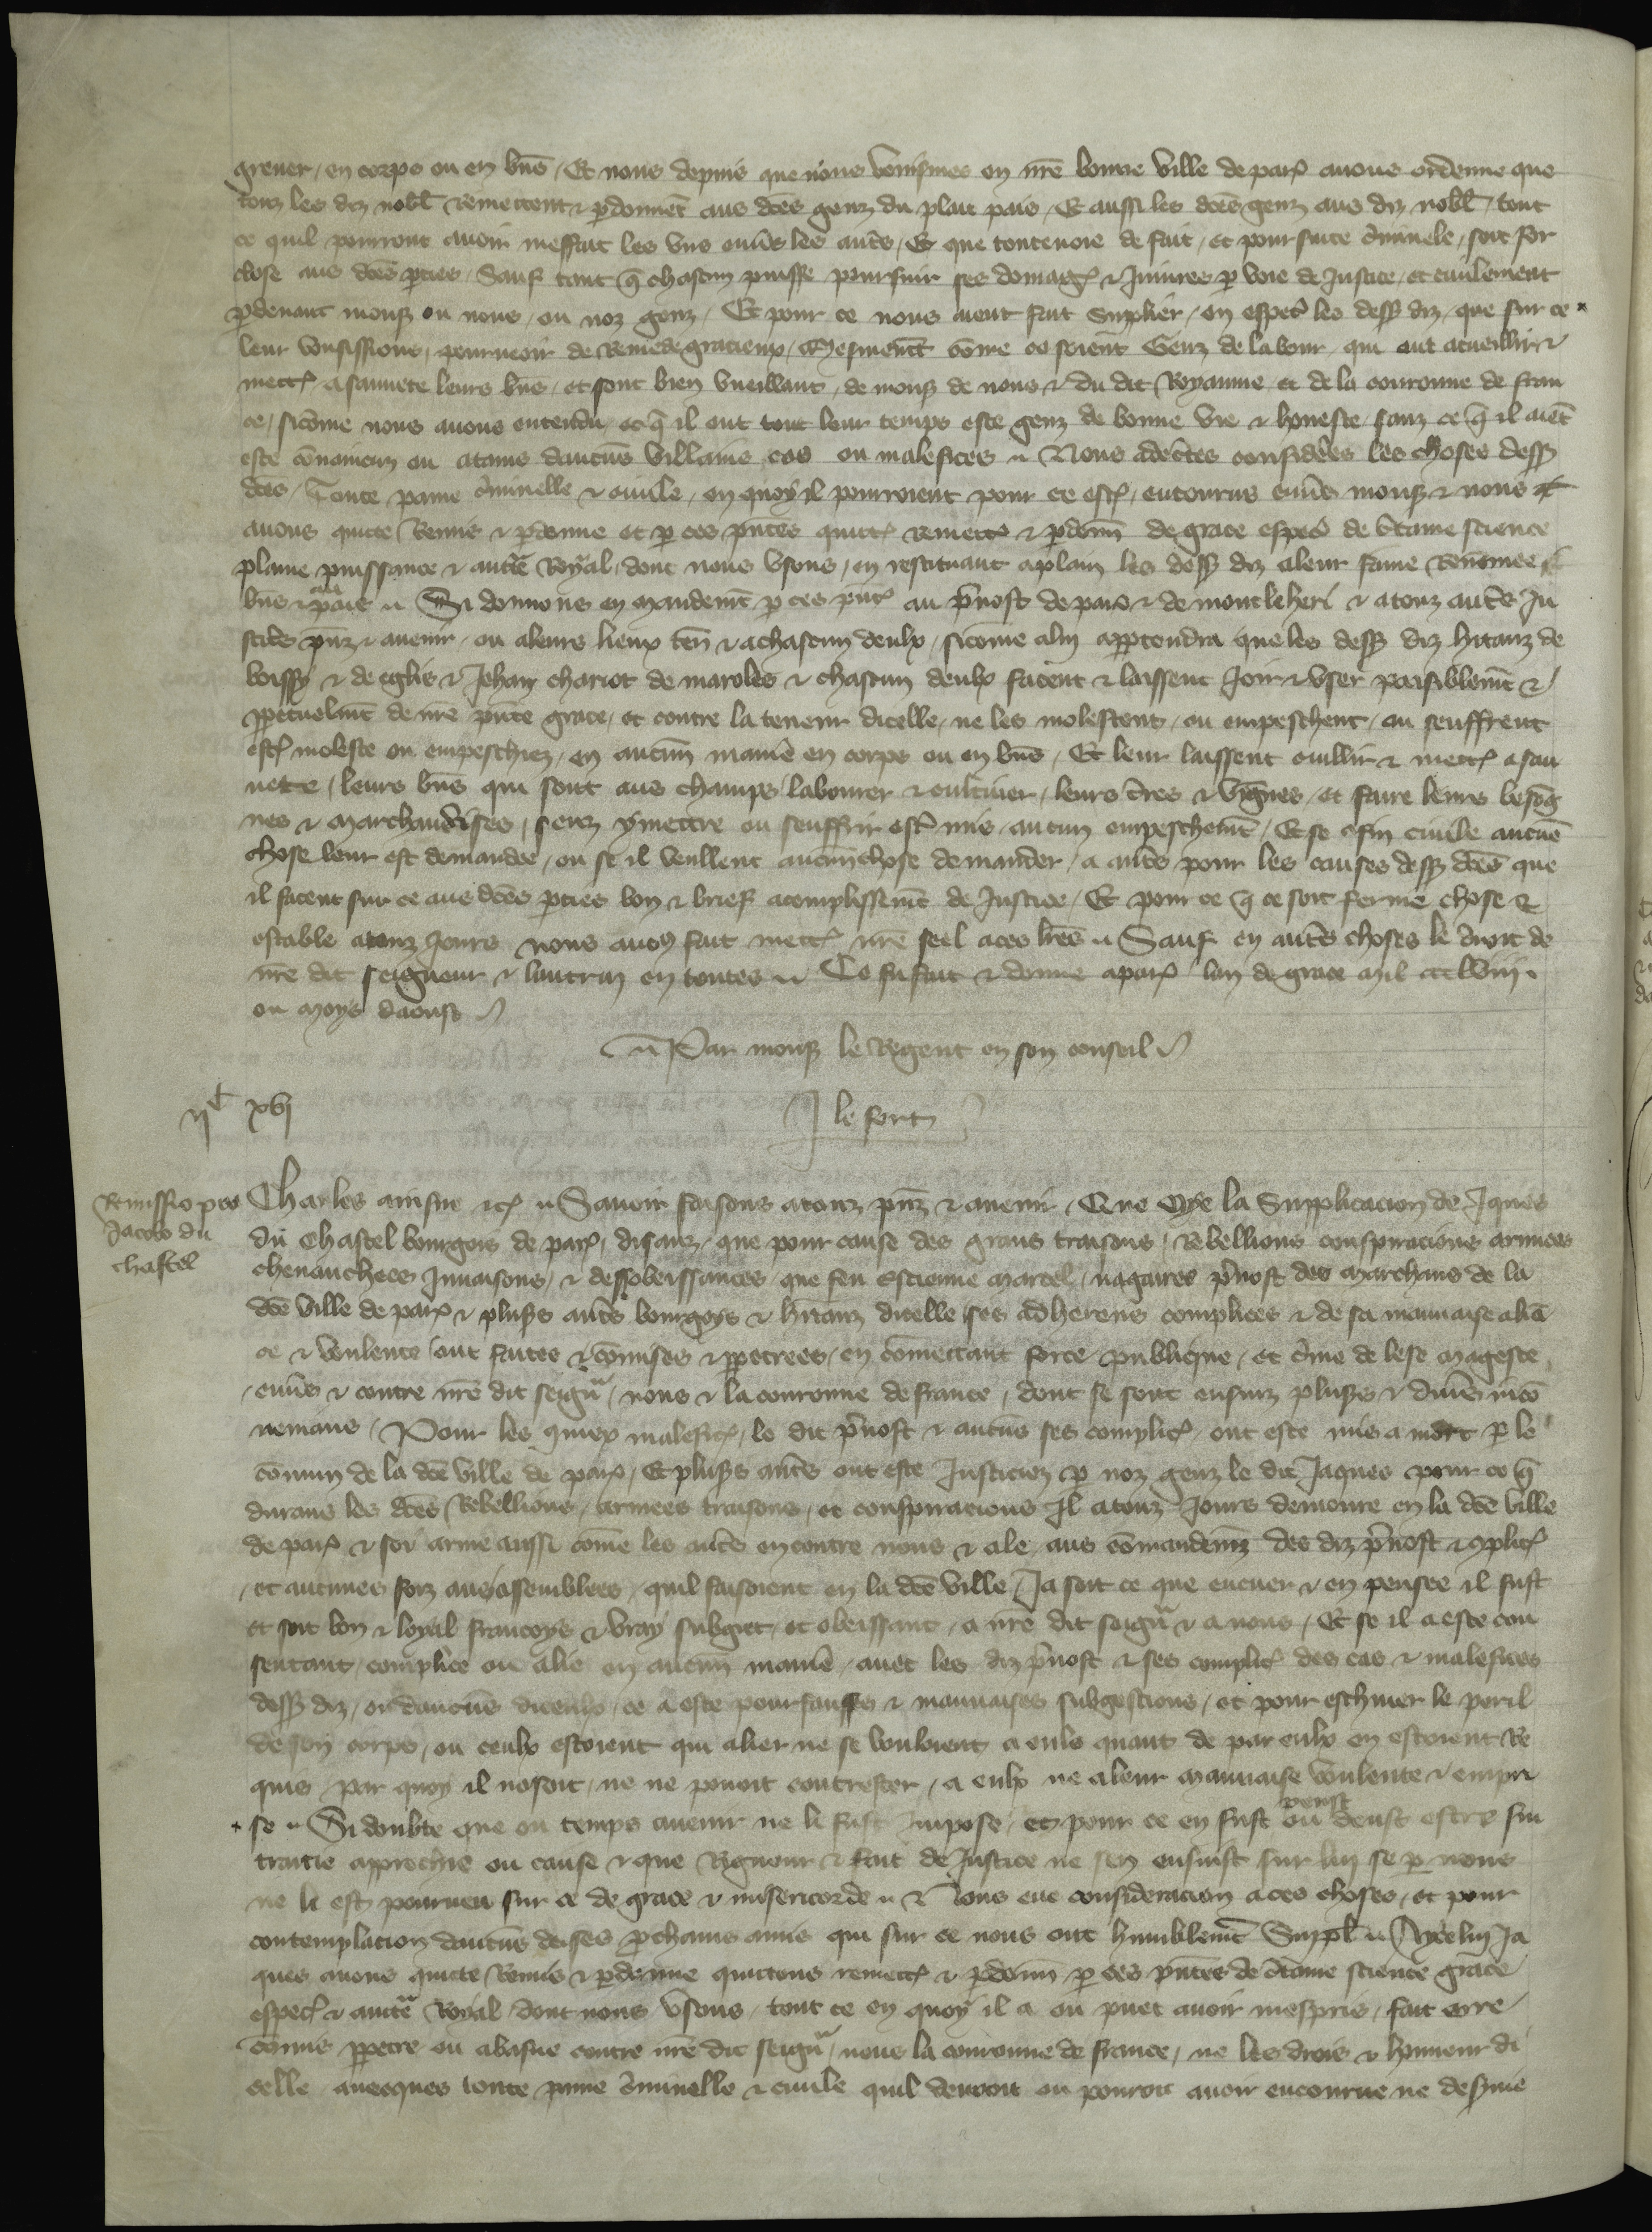 grever / en corps ou en bn̄s / Et nous depuis que nous venismes en nr̄e bonne ville de par̄ avons ordenne que
touz les diz nobl̄ remettent & pdonnēt aus dc̄es genz du plat pais / Et aussi les dc̄es genz aus diz nobl̄ / tout
ce quil pourront avoir meffait les uns env̄s les aut̄s / Et que toutevoie de fait / et poursuite c̄minele / soit for
close aus dc̄es pties / Sauf tant q̄ chascun puisse poursuir ses domaḡ & Injures p voie de Justice / et civilement
pdevant mons̄ ou nous / ou noz genz / Et pour ce nous aient fait supplier / en esp̄eal les dess̄ diz / que sur ce
leur vousissions / pourveoir de Remede gracieux / Mesmem̄t cōme ce soient Genz de labour / qui ont acueillir &
mett̄ a sauvete leurs bn̄s / et sont bien vueillans / de mons̄ de nous & du dit Royaume et de la couronne de fran
ce / sicōme nous avons entendu / et q̄ il ont tout leur temps este genz de bonne vie & honneste / sanz ce q̄ il aiēt
este cōvaincuz ou atains daucuns villains cas ou malefices ~ Nous adec̄tes considerēes les choses dess̄
dc̄es / Toute paine c̄minelle & civile / en quoy il pourroient pour ce est̄ / encourus env̄s mons̄ & nous
avons quicte Remis & pdonne et p ces pn̄tes quitt̄ remett̄ & pdonn̄ de grace esp̄eal de c̄taine science
plaine puissance & auct̄e Royal / dont nous usons / en restituant a plain les dess̄ diz a leur fame Renōmee
bn̄s & pais ~ Si donnons en mandem̄t p ces pn̄t̄ au p̄vost de par̄ & de montleheri & a touz aut̄s Ju
stic̄s pn̄z & avenir / ou a leurs lieux ten̄ & a chascun deulx / sicōme a lui appartendra que les dess̄ diz h̄itanz de
boissy & de eglis & Jehan chariot de maroles & chascun deulx facent & laissent Joir & user paisiblem̄t &
ppetuelm̄t de nr̄e pn̄te grace / et contre la teneur dicelle / ne les molestent / ou empeschent / ou seuffrent
est̄ moleste ou empeschiez / en aucun̄ maniē en corps ou en bn̄s / Et leur laissent cuillir & mett̄ a sau
vete / leurs bn̄s qui sont aus champs labourer & cultiver / leurs t̄res & vignes / et faire leurs besōg
nes & marchandises / senz y mettre ou seuffrir est̄ mis / aucun empeschem̄t / Et se a fin civile aucūe
chose leur est demandee / ou se il veullent aucun̄ chose demander / a aut̄s pour les causes dess̄ dc̄es que
il facent sur ce aus dc̄es pties bon & brief acomplissem̄t de Justice / Et pour ce q̄ ce soit ferme chose &
estable a touz Jours nous avōs fait mett̄ nr̄e seel a ces lr̄es ~ Sauf en aut̄s choses le droit de
nr̄e dit seigneur & lautrui en toutes ~ Ce fu fait & donne a par̄ lan de grace mil ccclviij .
ou moys daoust
Par mons̄ le Regent en son conseil
ijc xvj
J le fort
Remissio pro
Jacobo du
chastel
Charles ainsne etc̄ ~ Savoir faisons a touz pn̄z & avenir / Que Oye la Supplicacion de Jques
du Chastel bourgois de par̄ / disanz / que pour cause des grans traisons / Rebellions conspiracions armees
chevauchees Invasions / & desobeissances que feu Estienne Marcel / nagaires p̄vost des Marchans de la
dc̄e ville de par̄ & plus̄s aut̄s bourgoys & h̄itanz dicelle ses adherens complices & de sa mauvaise aliā
ce & voulente ont faites & cōmises & ppetrees / en cōmettant force publique / et c̄me de lese Mageste
env̄s & contre nr̄e dit seign̄r / nous & la couronne de france / dont se sont ensuiz plus̄s & div̄s incō
veniens / Pour les quiex malefic̄ / le dit p̄vost & aucūs ses complic̄ / ont este mis a mort p le
cōmun de la dc̄e ville de par̄ / Et plus̄s aut̄s ont este Justiciez p noz genz le dit Jaques pour ce q̄
durans les dc̄es Rebellions / armees traisons / et conspiracions Il a touz Jours demoure en la dc̄e ville
de par̄ & soy arme aussi cōme les aut̄s encontre nous & ale aus cōmandem̄z des diz p̄vost & 9plic̄
et aucunes foiz aus assemblees / quil faisoient en la dc̄e ville / Ja soit ce que encuer & en pensee il fust
et soit bon & loyal francoys & vray subgiet / et obeissant / a nr̄e dit seign̄r & a nous / Et se il a este con
sentant / complice ou alie en aucun̄ maniē / avec les diz p̄vost & ses complic̄ des cas & malefices
dess̄ diz / ou daucūs diceulx / ce a este pour fausses & mauvaises subgestions / et pour eschiver le peril
de son corps / ou ceulx estoient qui alier ne se vouloient a eulx quant de par eulx en estoient Re
quis / par quoy il nosoit / ne ne povoit contrester / a eulx ne a leur mauvaise voulente & empri
se ~ Si doubte que ou temps avenir ne li fust Impose / et pour ce en fust ou peust deust estre sui
traitie aprochie ou cause & que Rigueur & fait de Justice ne sen ensuist sur lui se p nous
ne li est pourveu sur ce de grace & misericorde ~ & Nous eue consideracion a ces choses / et pour
contemplacion daucūs de ses pchains amis qui sur ce nous ont humblem̄t Suppl̄ ~ Aycelui Ja
ques avons quicte Remis & pdonne quictons remett̄ & pdonn̄ p ces pn̄tes de c̄taine science grace
espec̄ & auct̄e Royal dont nous usons / tout ce en quoy il a ou puet avoir mespris / fait erre
cōmis ppetre ou abasne contre nr̄e dit seign̄r / nous la couronne de france / ne les drois & honneur di
celle / avecques toute paine c̄minelle & civile quil devroit ou pourroit avoir encourue ne desserui